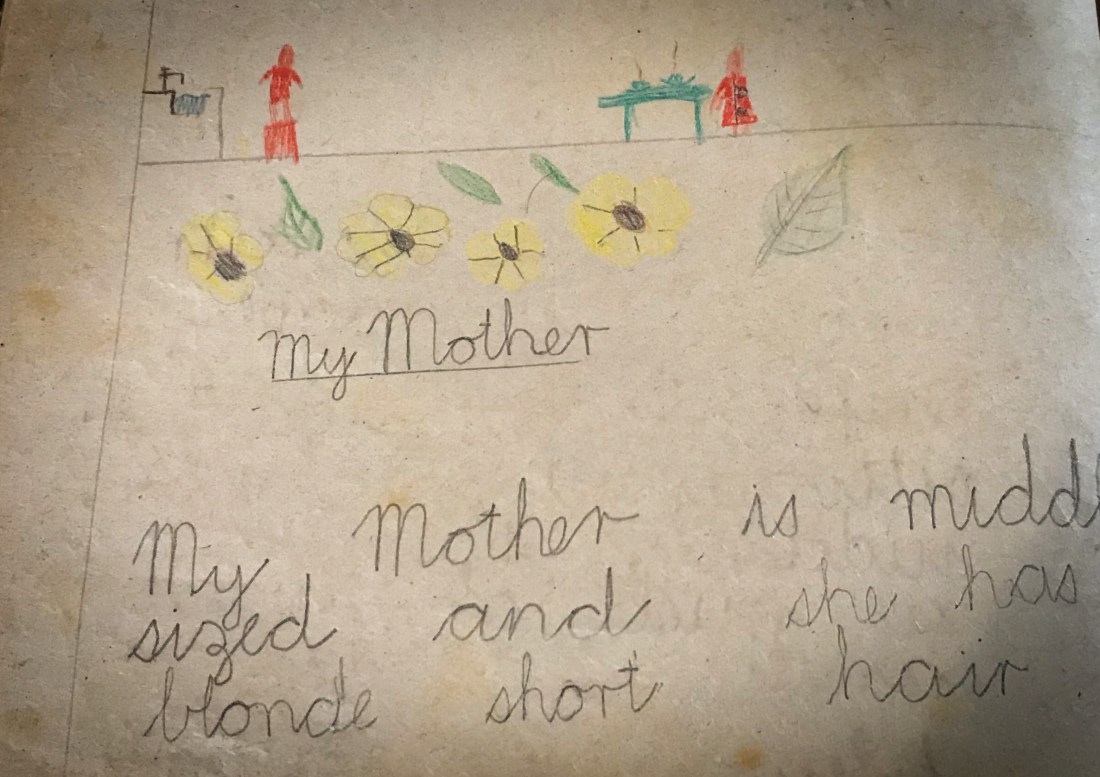 My Mother
My Mother is middl
sized and she has
blonde short hair